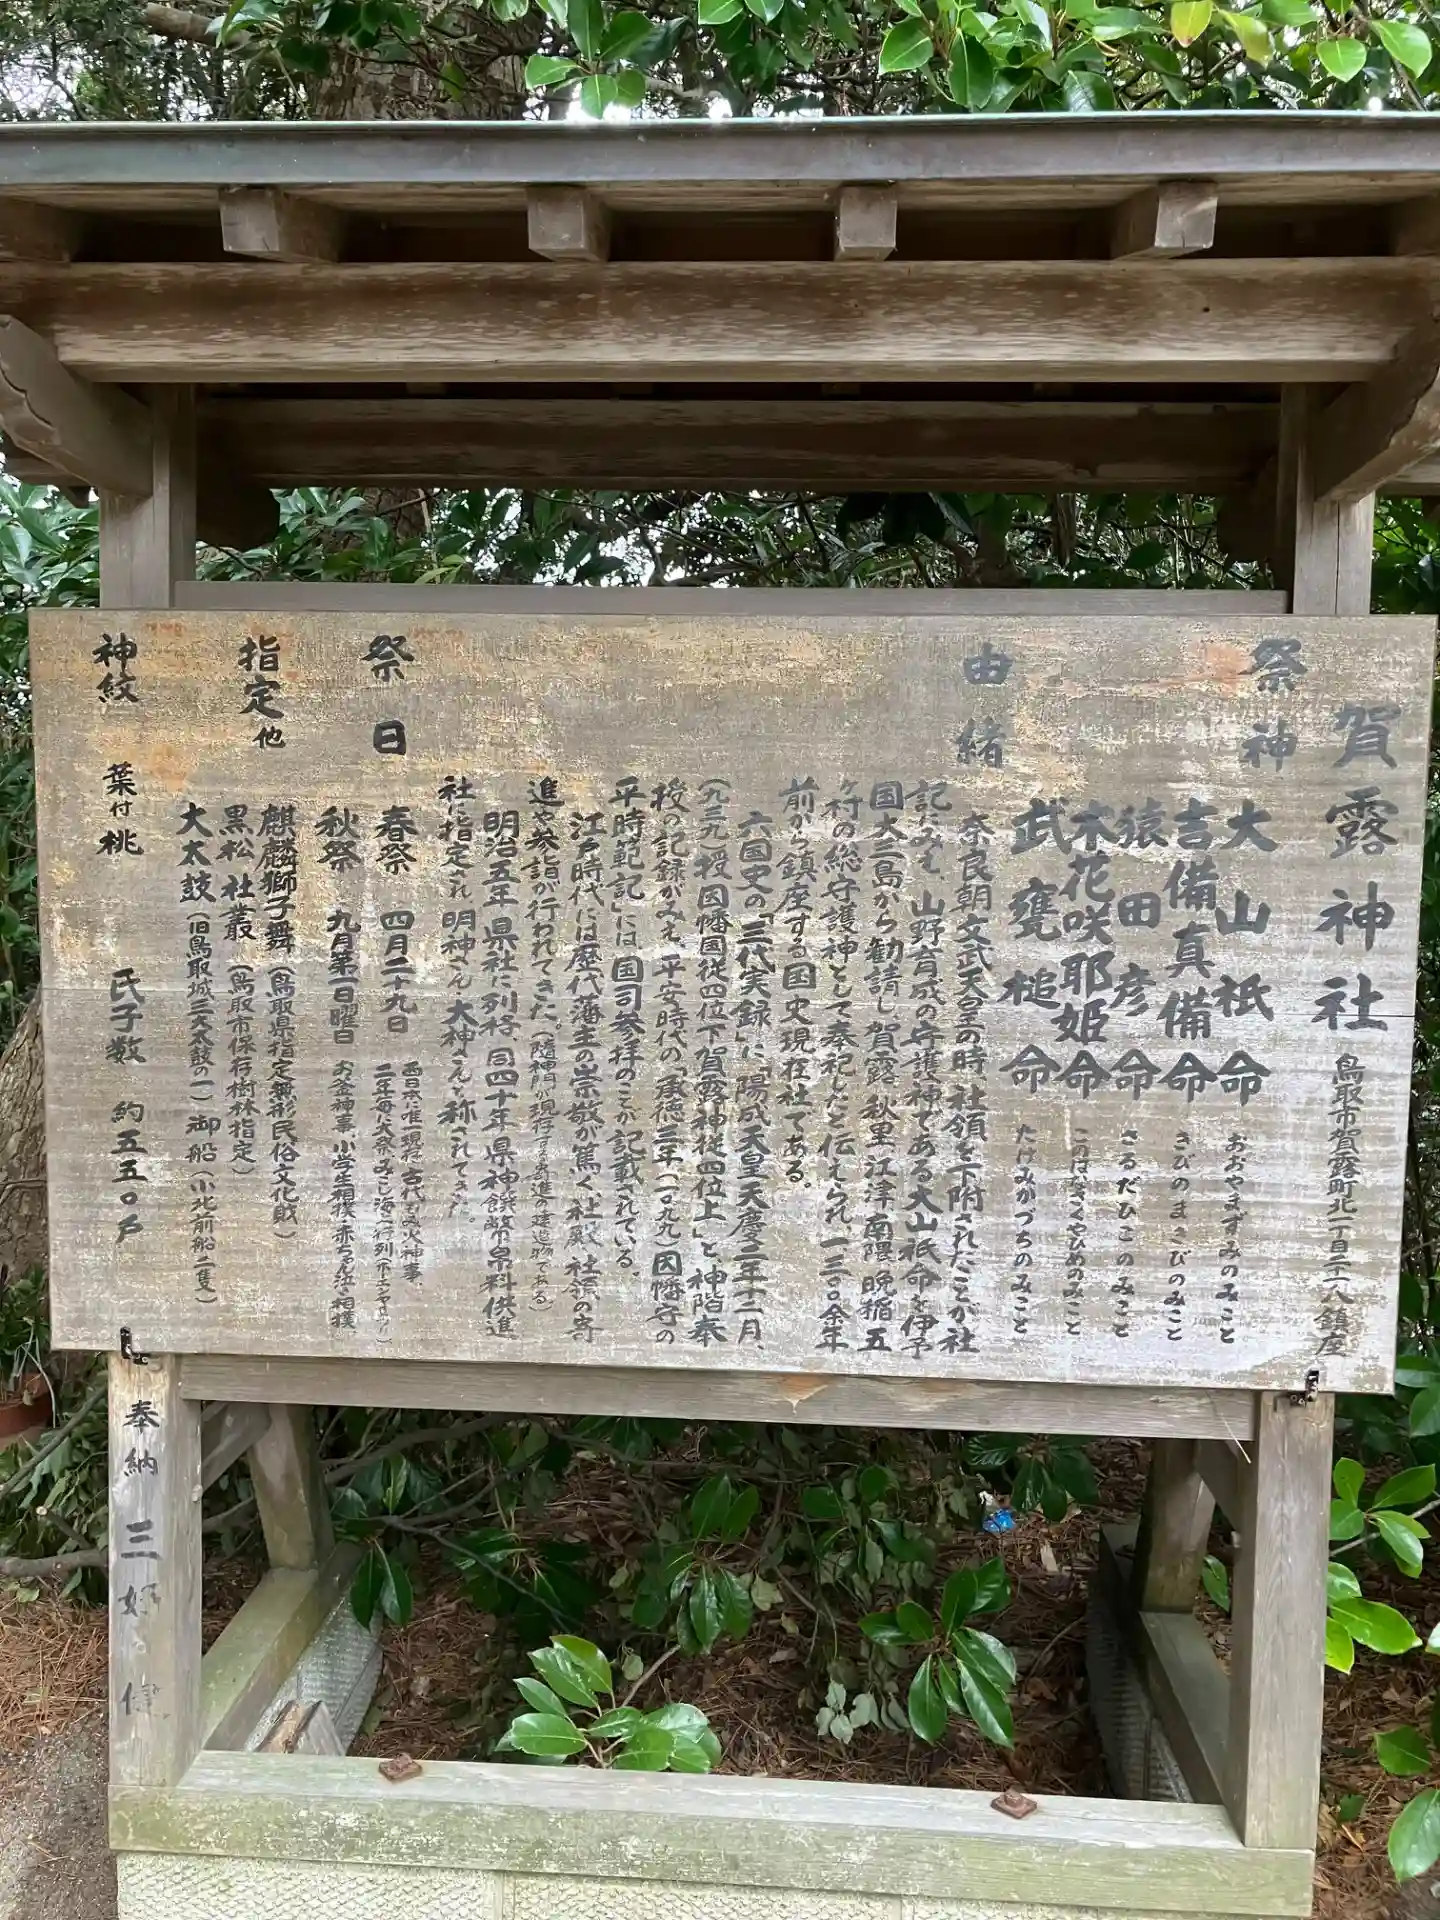 賀露神社 鳥取市賀露町北一丁目二十一八鎮座
祭神
大山祇命 おおやまずみのみこと
吉備真備命 きびのまきびのみこと
猿田彦命 さるだひこのみこと
木花咲耶姫命 このはなさくやひめのみこと
武甕槌命 たけみかづちのみこと
由緒
奈良朝文武天皇の時、社領を下附されたことが社
記にみえ、山野育成の守護神である大山祇命を伊予
国大三島から勧請し、賀露、秋里、江津、南隈、晩稲五
ヶ村の総守護神として奉祀したと伝えられ一三〇〇余年
前から鎮座する国史現在社である。
六国史の「三代実録」に「陽成天皇天慶二年十二月、
(九三九)授因幡国従四位下賀露神従四位上」と、神階奉
授の記録がみえ、平安時代の「承徳三年(一〇九九)因幡守の
平時範記」には国司参拝のことが記載されている。
江戸時代には歴代藩主の崇敬が篤く社殿、社領の寄
進や参詣が行われてきた。(随神門が現存する寄進の建造物である)
明治五年県社に列格、同四十年県神饌幣帛料供進
社に指定され 明神さん 大神さんと称されてきた。
祭日
春祭 四月二十九日 西日本に唯一現存、古代よみ火神事、
二年毎に大祭みこし海上行列(ホーエンヤ祭り)
秋祭 九月第一日曜日 お釜神事、小学生相撲、赤ちゃん泣き相撲、
指定他
麒麟獅子舞(鳥取県指定無形民俗文化財)
黒松社叢(鳥取市保存樹林指定)
大太鼓(旧鳥取城三大太鼓の一)御船(小北前船二隻)
神紋 葉付桃 氏子数 約五五〇戸
奉納 三好